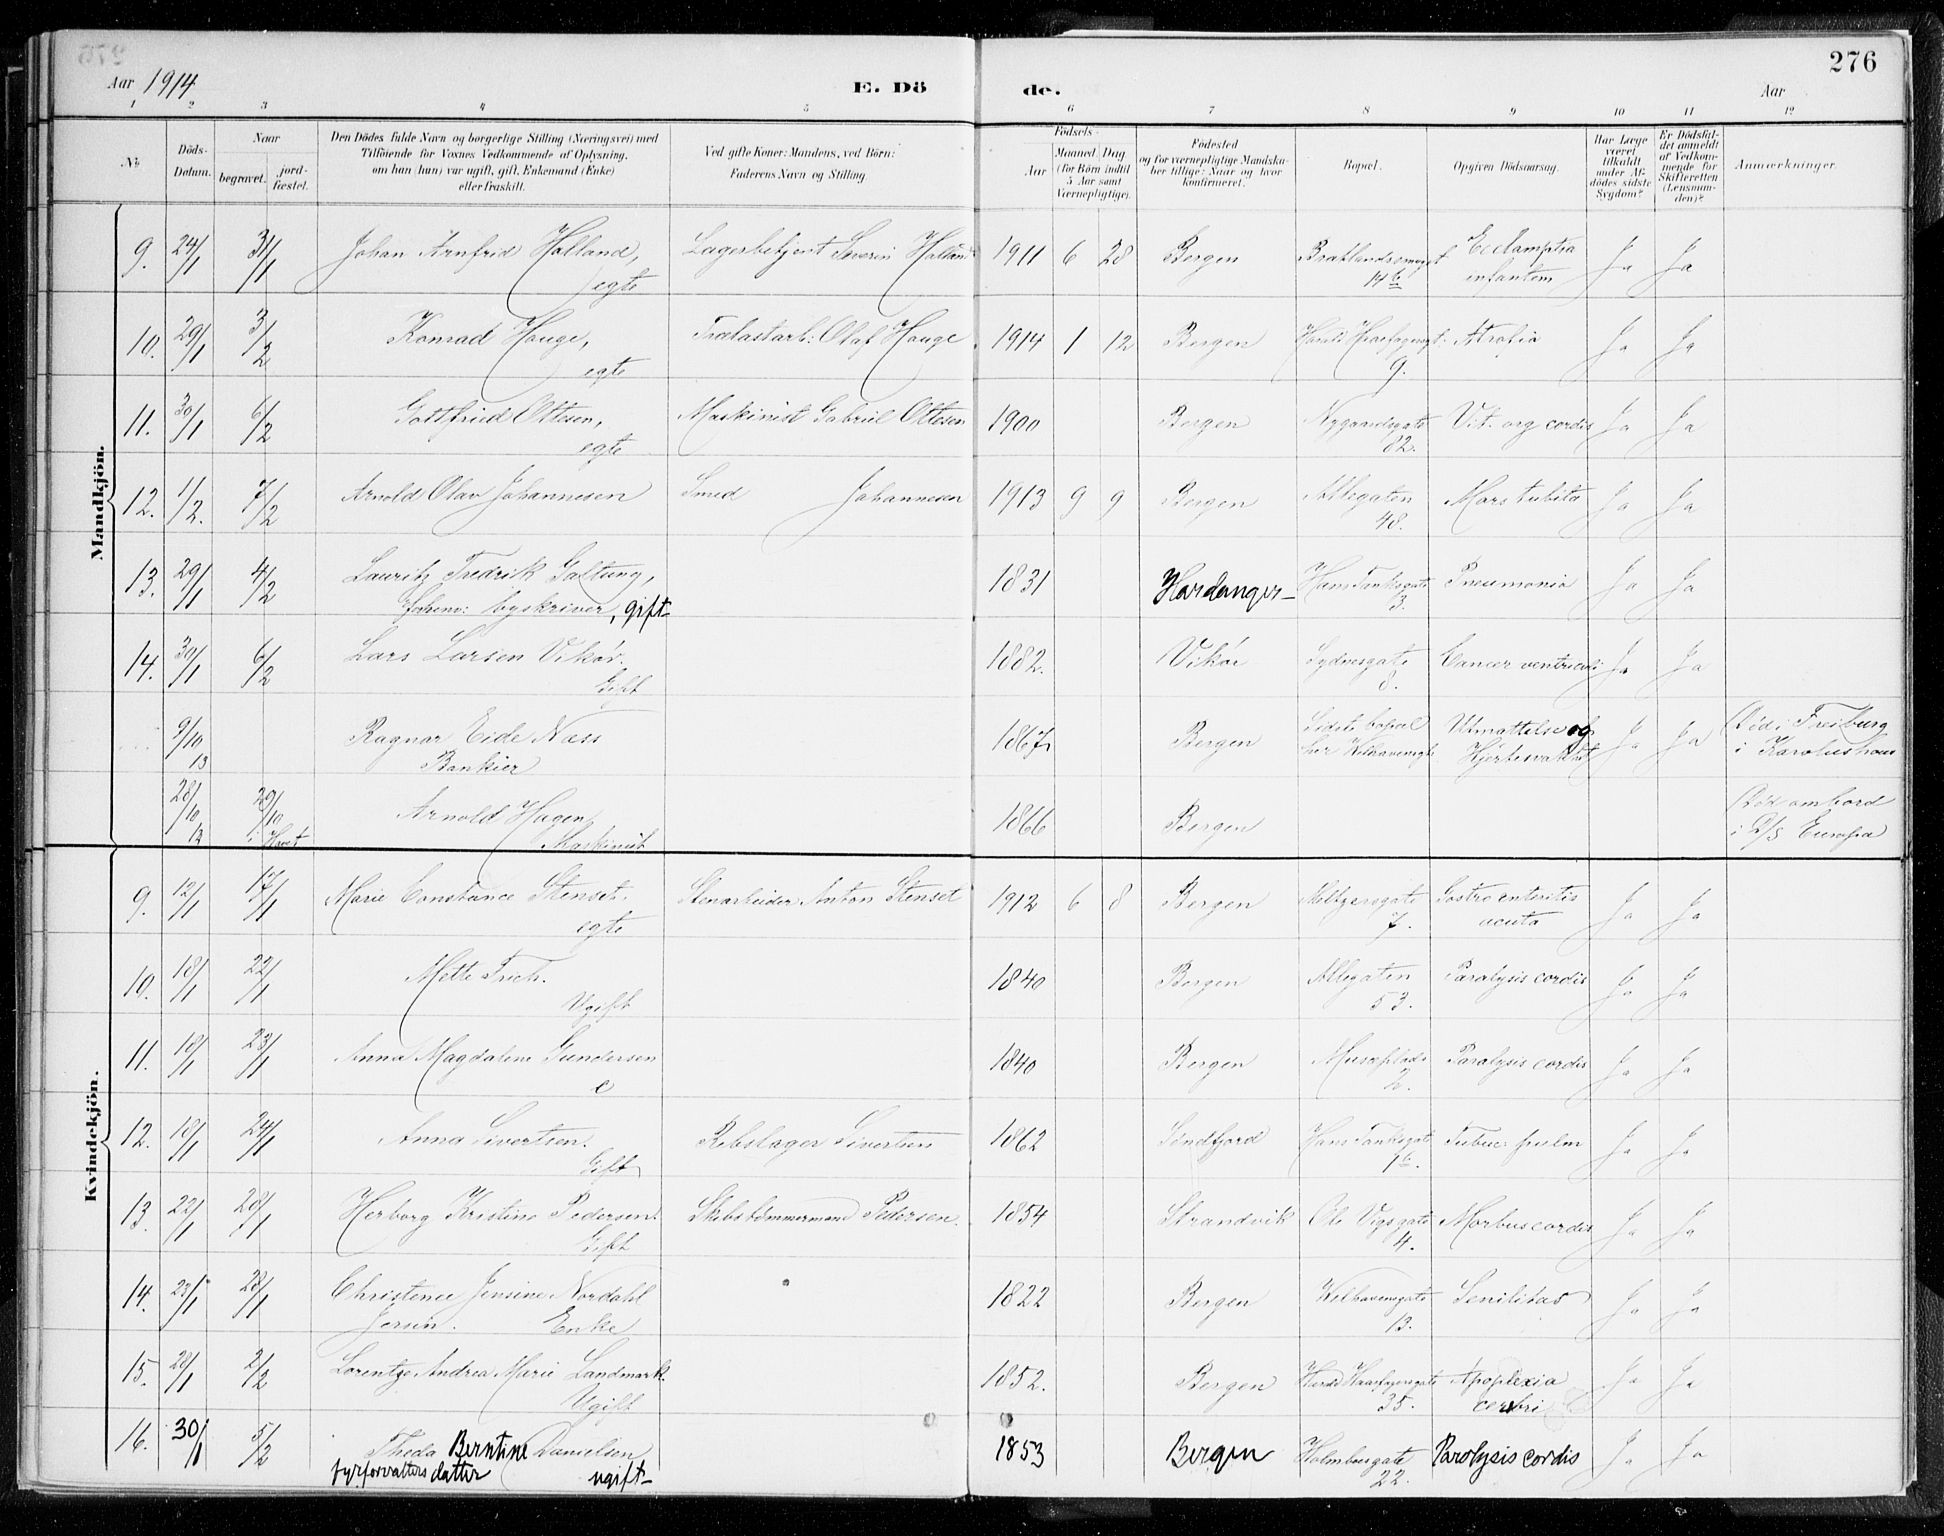 276
Aar 1914
E. Dö
de.
Aar
1 2 3 4 5 6 7 8 9 10 11 12
No
Döds-Datum.
Naar
begravet.
jord-fæstet.
Den Dödes fulde Navn og borgerlige Stilling (Næringsvei) med
Tilföiende for Voxnes Vedkommende af Oplysning,
om han (hun) var ugift, gift, Enkemand (Enke)
eller fraskilt.
Ved gifte Koner: Mandens, ved Börn:
Faderens Navn og Stilling.
Födsels-
Aar
Maaned Dag
(for Börn indtil
5 Aar samt
Værnepligtige).
Födested
og for værnepligtige Mandska-
ber tillige: Naar og hvor
konfirmeret.
Bopæl.
Opgiven Dödsaarsag.
Har Læge
været
tilkaldt
under Af-
dödes sidste
Sygdom?
Er Dödsfal-
det anmeldt
af Vedkom-
mende for
Skifteretten
(Lensman-
den)?
Anmærkninger.
Mandkjön.
9. 24/1 31/1 Johan Arnfrid Halland, Lagerbetjent Severin Halland 1911 6 28 Bergen Eclamptia Ja Ja
egte 14 b infantem
10. 29/1 3/2 Konrad Hauge, Trælastarb: Olaf Hauge 1914 1 12 Bergen Harald Haarfagresgt. Atrofia Ja Ja
egte 9.
11. 30/1 6/2 Gottfried Ottesen, Maskinist Gabriel Ottesen 1900 Bergen Nygaardsgate Vit. org cordis Ja Ja
egte 82.
12. 1/2. 7/2 Arnold Olav Johannesen Smed Johannesen 1913 9 9 Bergen Allegaten Mors subita Ja Ja
48.
13. 29/1 4/2 Lauritz Fredrik Galtung, 1831 Hardanger Hans Tanksgate Pneumonia Ja Ja
byskriver, gift 3.
14. 30/1 6/2 Lars Larsen Vikör. 1882. Vikör Sydnesgate Cancer ventriculi Ja Ja
Gift 8.
9/10 13 Ragnar Eide Næss 1867 Bergen Sidste bopæl Utmattelse og Ja Ja Död i Freiburg
Bankier her Welhavensgt Hjertesvakhet i Karolushaus
28/10 13 29/10 i Havet Arnold Hagen 1866 Bergen Död ombord
Maskinist i D/S Europa
Kvindekjön.
9. 12/1 17/1 Marie Constance Stenset. Stenarbeider Anton Stenset 1912 6 8 Bergen Meltzersgate Gastro enteritis Ja Ja
egte 7. acuta
10. 18/1 22/1 Mette 1840 Bergen Allegaten Paralysis cordis Ja Ja
Ugift 53.
11. 18/1 23/1 Anna Magdalene Gundersen 1840 Bergen Musæplads Paralysis cordis Ja Ja
e 2.
12. 18/1 24/1 Anna Sivertsen. Rebslager Sivertsen 1862 Söndfjord Hans Tanksgate Tuberc: pulm Ja Ja
Gift 1 b.
13. 22/1 28/1 Herborg Kristine Pedersen. Skibstömmermand Pedersen. 1854 Strandvik Ole Vigsgate Morbus cordis Ja Ja
Gift 4.
14. 23/1 28/1 Christence Jensine Nordahl 1822 Bergen Welhavensgate Senilitas Ja Ja
Jersin. Enke 13.
15. 28/1 2/2 Lorentze Andrea Marie Landmark. 1852. Bergen Harald Haarfagresgate Apoplexia Ja Ja
Ugift 35. cerebri
16. 30/1 5/2 Theda Berntine Danielsen 1853 Bergen Holmboesgate Paralysis cordis Ja Ja
fyrforvalters datter ugift 22.